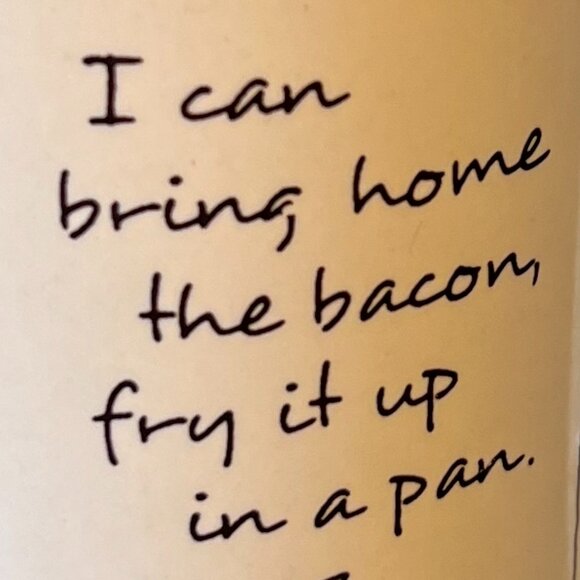 I can
bring home
the bacon,
fry it up
in a pan.